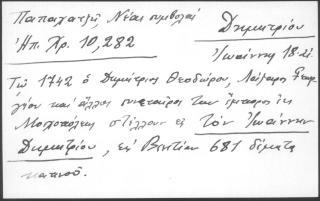 Παπαγιατζῆ, Νέαι συμβολαί
Ἠπ. Χρ. 10, 282
Δημητρίου
Ἰωάννης 18 αἰ.
Τῷ 1742 ὁ Δημήτριος Θεοδώρου, Λάζαρος
καὶ ἄλλοι συνεταῖροι των ἔμποροι
Μοσχοπόλεως στέλλουν εἰς τὸν Ἰωάννην
Δημητρίου, εἰς Βενετίαν 681 δέματα
καπνοῦ.